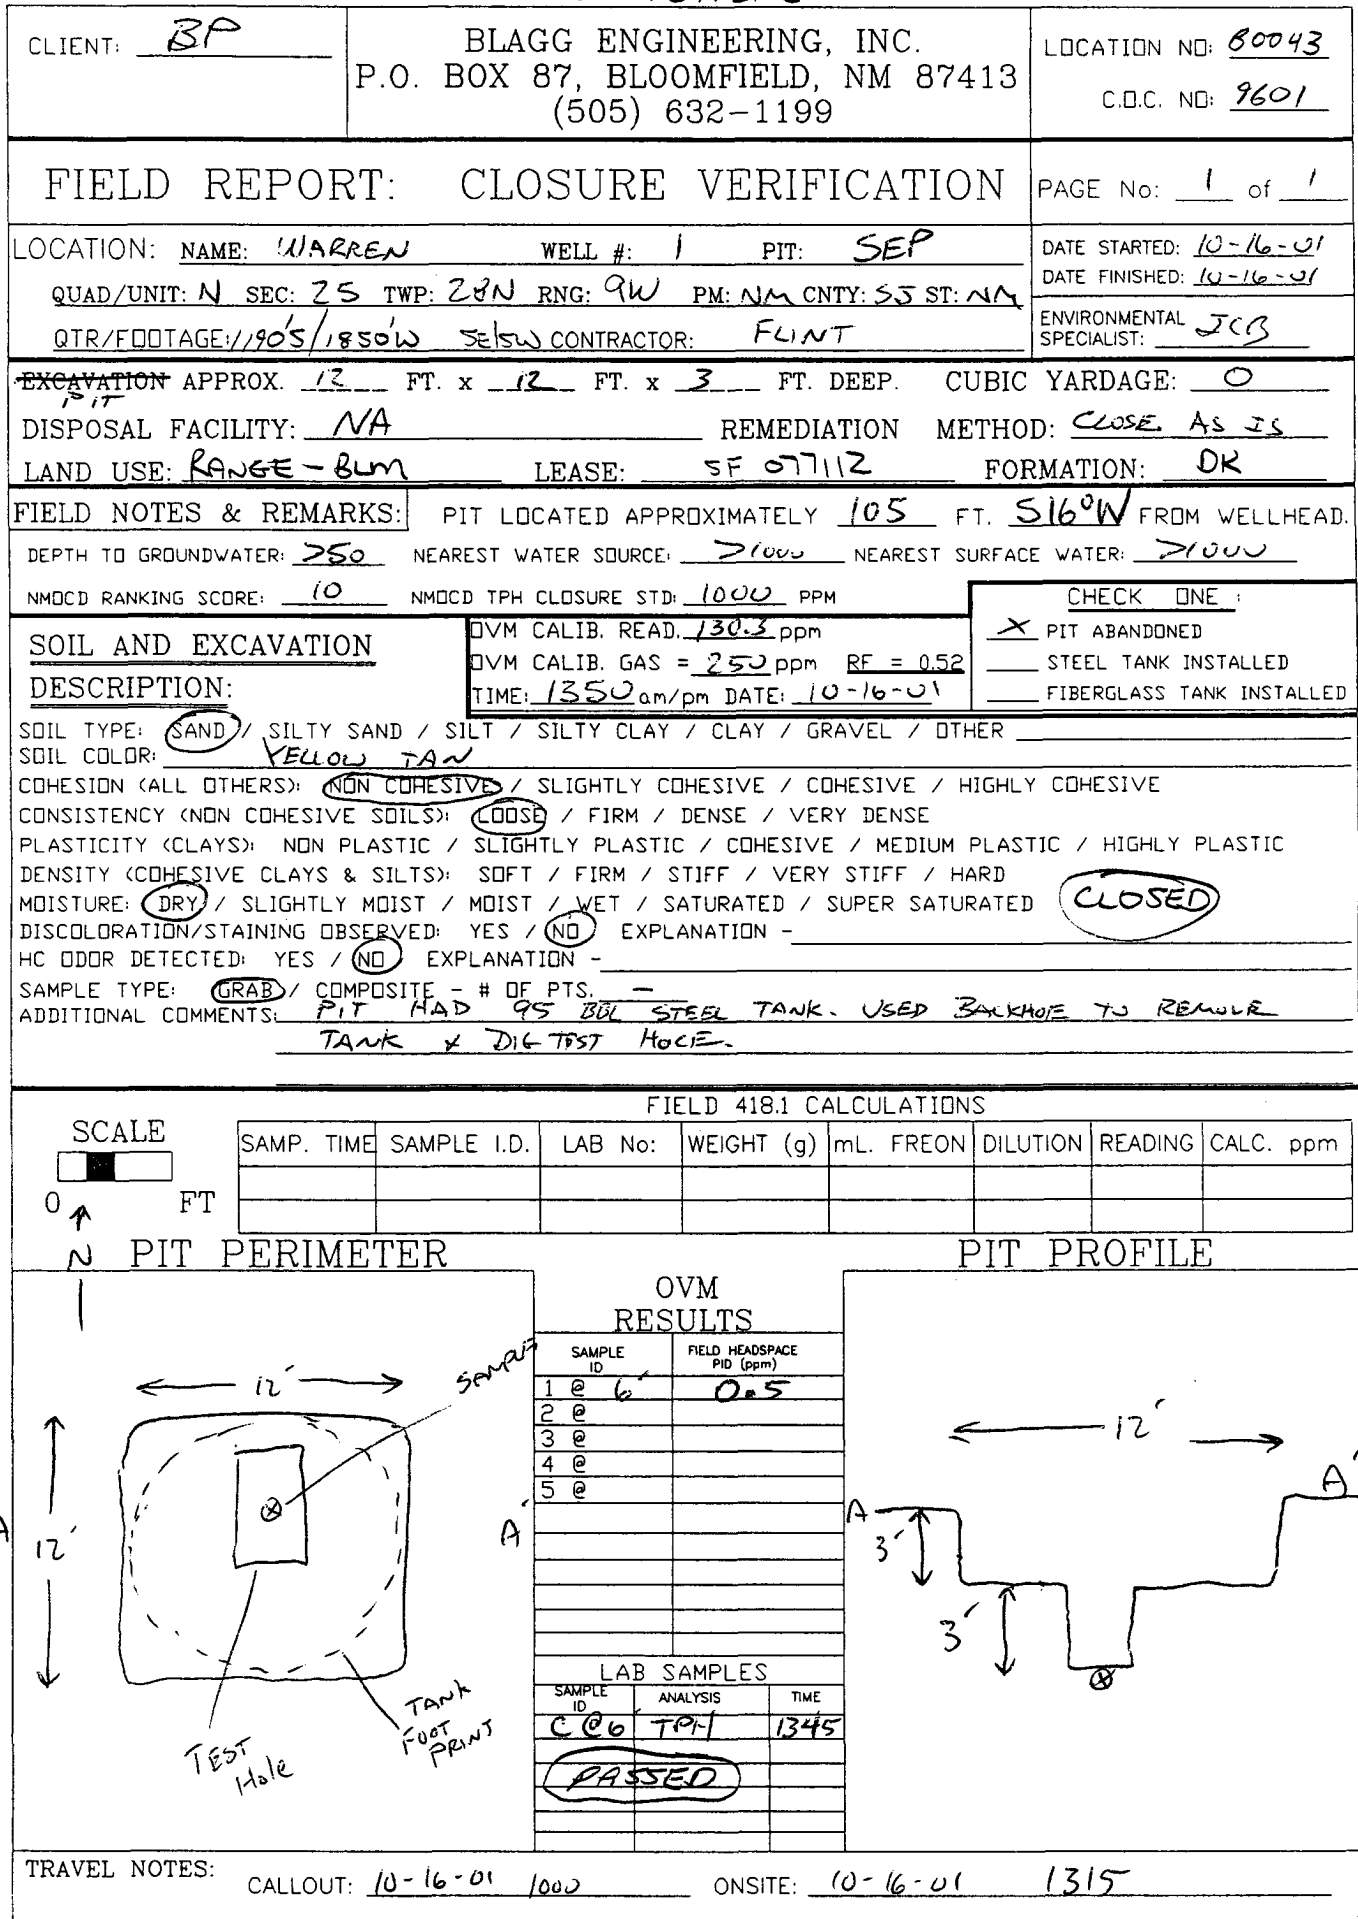 CLIENT: BP
BLAGG ENGINEERING, INC.
P.O. BOX 87, BLOOMFIELD, NM 87413
(505) 632-1199
LOCATION NO: B0043
C.O.C. NO: 9601
FIELD REPORT: CLOSURE VERIFICATION
PAGE No: 1 of 1
LOCATION: NAME: WARREN WELL #: 1 PIT: SEP
QUAD/UNIT: N SEC: 25 TWP: 28N RNG: 9W PM: NM CNTY: SJ ST: NM
QTR/FOOTAGE: 1190'S/1850'W SE/SW CONTRACTOR: FLINT
DATE STARTED: 10-16-01
DATE FINISHED: 10-16-01
ENVIRONMENTAL SPECIALIST: JCB
EXCAVATION APPROX. 12 FT. x 12 FT. x 3 FT. DEEP. CUBIC YARDAGE: 0
PIT
DISPOSAL FACILITY: NA REMEDIATION METHOD: CLOSE AS IS
LAND USE: RANGE - BLM LEASE: SF 077112 FORMATION: DK
FIELD NOTES & REMARKS: PIT LOCATED APPROXIMATELY 105 FT. S16°W FROM WELLHEAD.
DEPTH TO GROUNDWATER: >50 NEAREST WATER SOURCE: >1000 NEAREST SURFACE WATER: >1000
NMOCD RANKING SCORE: 10 NMOCD TPH CLOSURE STD: 1000 PPM
CHECK ONE :
X PIT ABANDONED
STEEL TANK INSTALLED
FIBERGLASS TANK INSTALLED
SOIL AND EXCAVATION
DESCRIPTION:
OVM CALIB. READ. 130.3 ppm
OVM CALIB. GAS = 250 ppm RF = 0.52
TIME: 1350 am/pm DATE: 10-16-01
SOIL TYPE: SAND / SILTY SAND / SILT / SILTY CLAY / CLAY / GRAVEL / OTHER
SOIL COLOR: YELLOW TAN
COHESION (ALL OTHERS): NON COHESIVE / SLIGHTLY COHESIVE / COHESIVE / HIGHLY COHESIVE
CONSISTENCY (NON COHESIVE SOILS): LOOSE / FIRM / DENSE / VERY DENSE
PLASTICITY (CLAYS): NON PLASTIC / SLIGHTLY PLASTIC / COHESIVE / MEDIUM PLASTIC / HIGHLY PLASTIC
DENSITY (COHESIVE CLAYS & SILTS): SOFT / FIRM / STIFF / VERY STIFF / HARD
MOISTURE: DRY / SLIGHTLY MOIST / MOIST / WET / SATURATED / SUPER SATURATED CLOSED
DISCOLORATION/STAINING OBSERVED: YES / NO EXPLANATION -
HC ODOR DETECTED: YES / NO EXPLANATION -
SAMPLE TYPE: GRAB / COMPOSITE - # OF PTS. -
ADDITIONAL COMMENTS: PIT HAD 95 BBL STEEL TANK. USED BACKHOE TO REMOVE
TANK & DIG TEST HOLE.
FIELD 418.1 CALCULATIONS
SCALE
0 FT
SAMP. TIME SAMPLE I.D. LAB No: WEIGHT (g) mL. FREON DILUTION READING CALC. ppm
N
PIT PERIMETER
PIT PROFILE
OVM
RESULTS
SAMPLE ID FIELD HEADSPACE PID (ppm)
1 @ 6' 0.5
2 @
3 @
4 @
5 @
LAB SAMPLES
SAMPLE ID ANALYSIS TIME
C @ 6' TPH 1345
PASSED
12'
SAMPLE
12'
A
A'
TEST
Hole
TANK
FOOT
PRINT
12'
A
A'
3'
3'
TRAVEL NOTES: CALLOUT: 10-16-01 1000 ONSITE: 10-16-01 1315